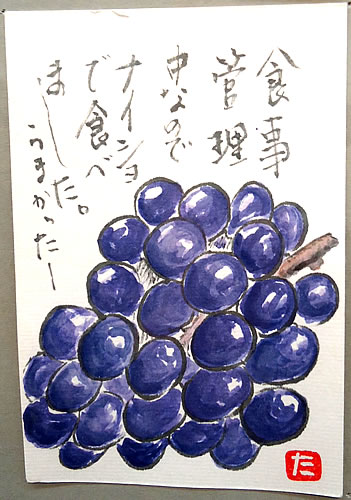 食事
管理
中なので
ナイショ
で食べ
ました。
うまかったー
た